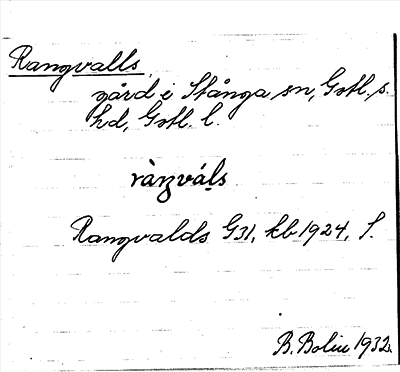 Rangvalls,
gård i Stånga sn, Gotl. s.
hd, Gotl. l.
ràŋváḷs
Rangvalds G31, kb 1924, S.
B. Bolin 1932.